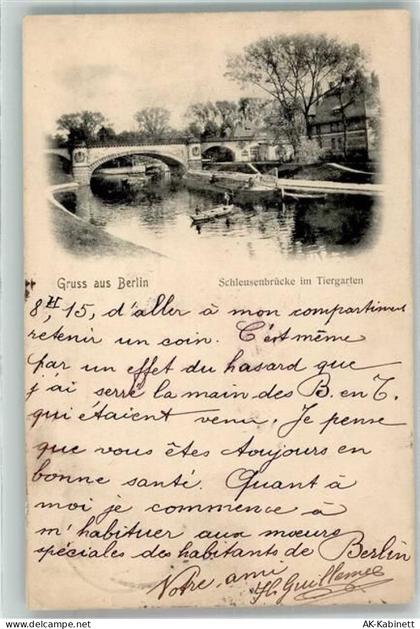 Gruss aus Berlin
Schleusenbrücke im Tiergarten
8H 15, d'aller à mon compartiment
retenir un coin. C'est même
par un effet du hasard que
j'ai serré la main des B. en T.
qui étaient venu. Je pense
que vous êtes toujours en
bonne santé. Quant à
moi je commence à
m'habituer aux mœurs
spéciales des habitants de Berlin
Votre ami Th Guillemet
AK-Kabinett